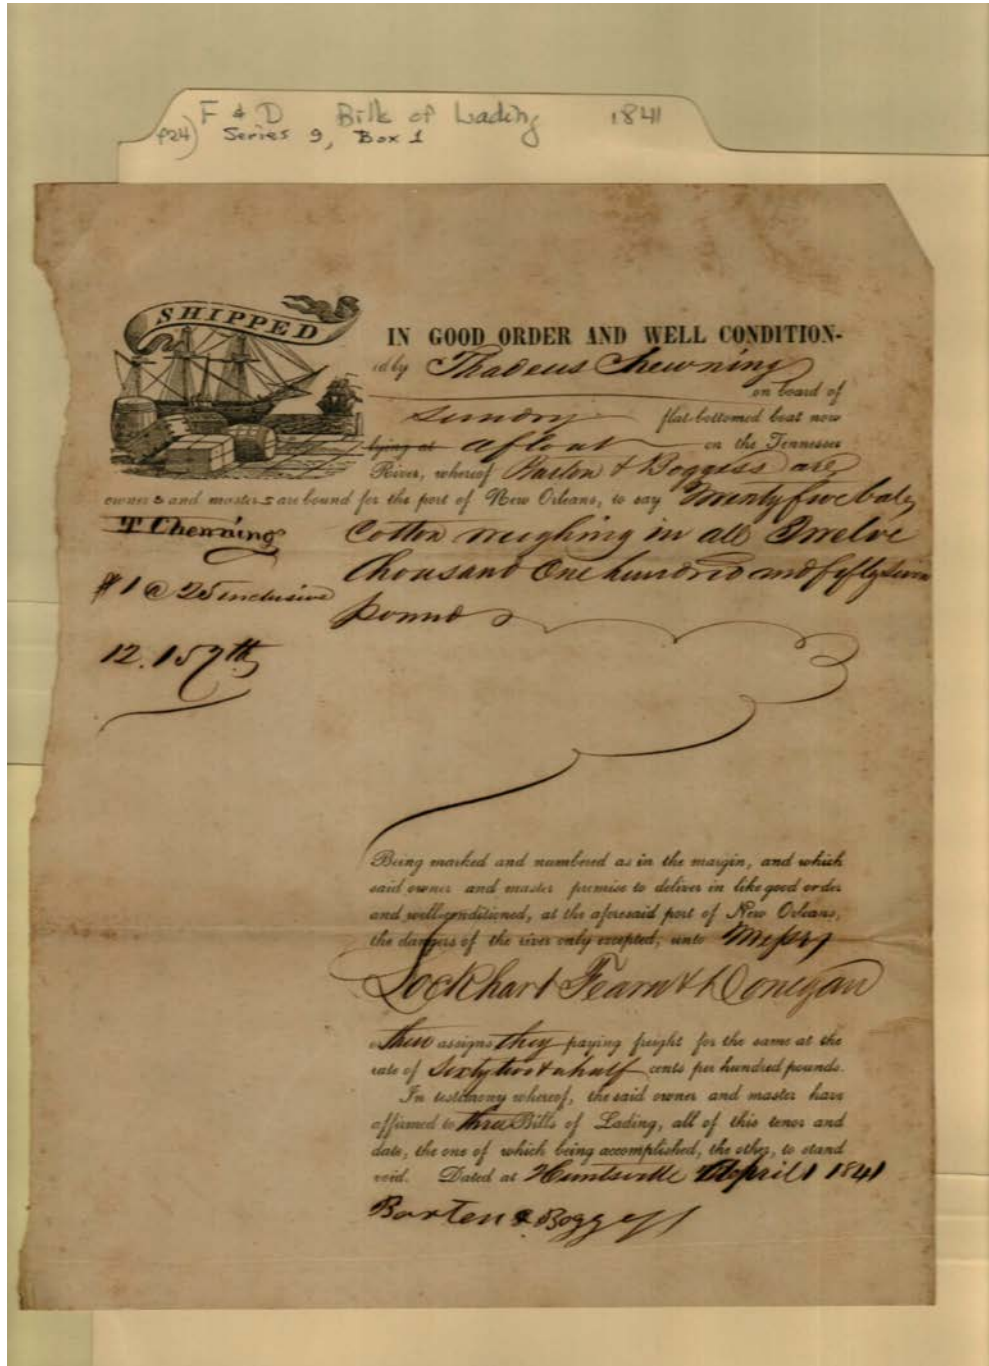 F & D Bills of Lading 1841
P24) Series 9, Box 1
SHIPPED
IN GOOD ORDER AND WELL CONDITION-
ed by Thadeus Chewning
on board of
sundry flat-bottomed boat now
lying at afloat on the Tennessee
River, whereof Barton & Boggess are
owners and masters are bound for the port of New Orleans, to say Twenty five bales
T Chewning
Cotton weighing in all Twelve
thousand One hundred and fifty seven
#1 @ 25 inclusive
pounds
12.157 lb
Being marked and numbered as in the margin, and which
said owner and master promise to deliver in like good order
and well-conditioned, at the aforesaid port of New Orleans,
the dangers of the river only excepted, unto Messrs
Lockhart Fearn & Donegan
or their assigns they paying freight for the same at the
rate of Sixty two & a half cents per hundred pounds.
In testimony whereof, the said owner and master have
affirmed to three Bills of Lading, all of this tenor and
date, the one of which being accomplished, the other, to stand
void. Dated at Huntsville April 1 1841
Barten & Boggess